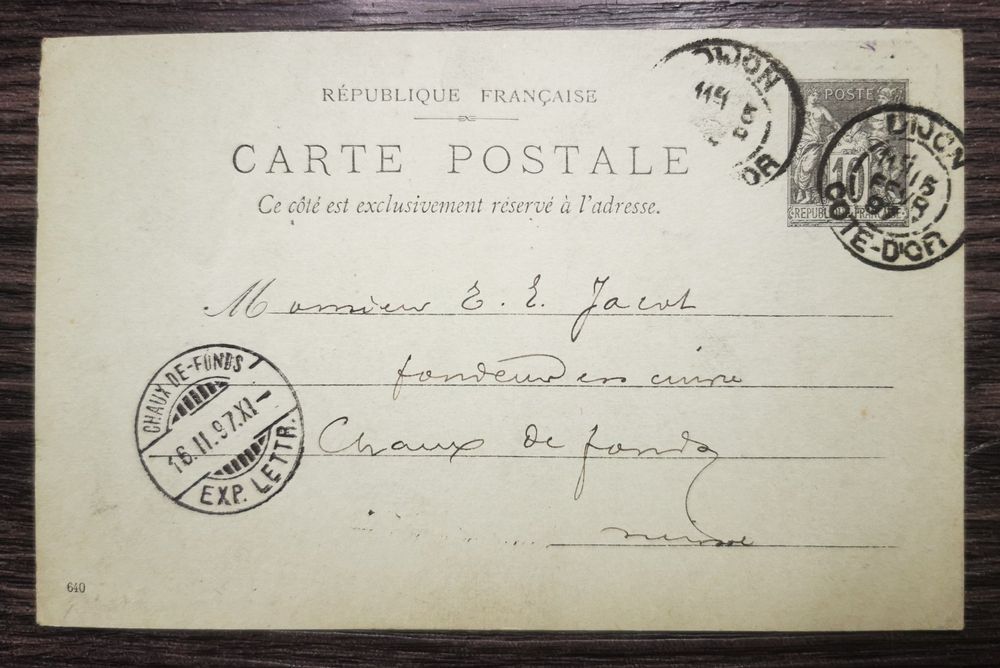 RÉPUBLIQUE FRANÇAISE
CARTE POSTALE
Ce côté est exclusivement réservé à l'adresse.
DIJON
OR
POSTE
10
REPUBLIQUE FRANÇAISE
DIJON
15
FEVR
CÔTE-D'OR
Monsieur E. E. Jacot
fondeur en cuivre
Chaux de fonds
suisse
CHAUX-DE-FONDS
16.II.97.XI-
EXP. LETTR.
640